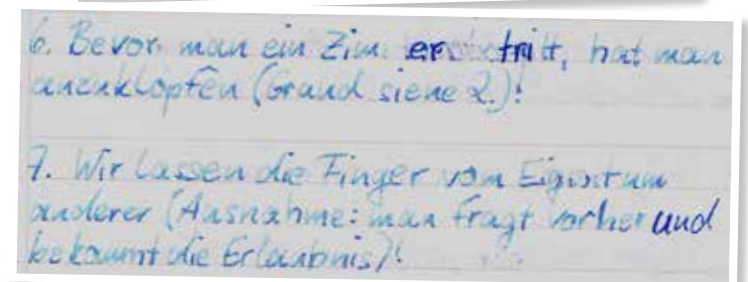 6. Bevor man ein Zimmer betritt, hat man
anzuklopfen (Grund siehe 2.)!
7. Wir lassen die Finger vom Eigentum
anderer (Ausnahme: man fragt vorher und
bekommt die Erlaubnis)!